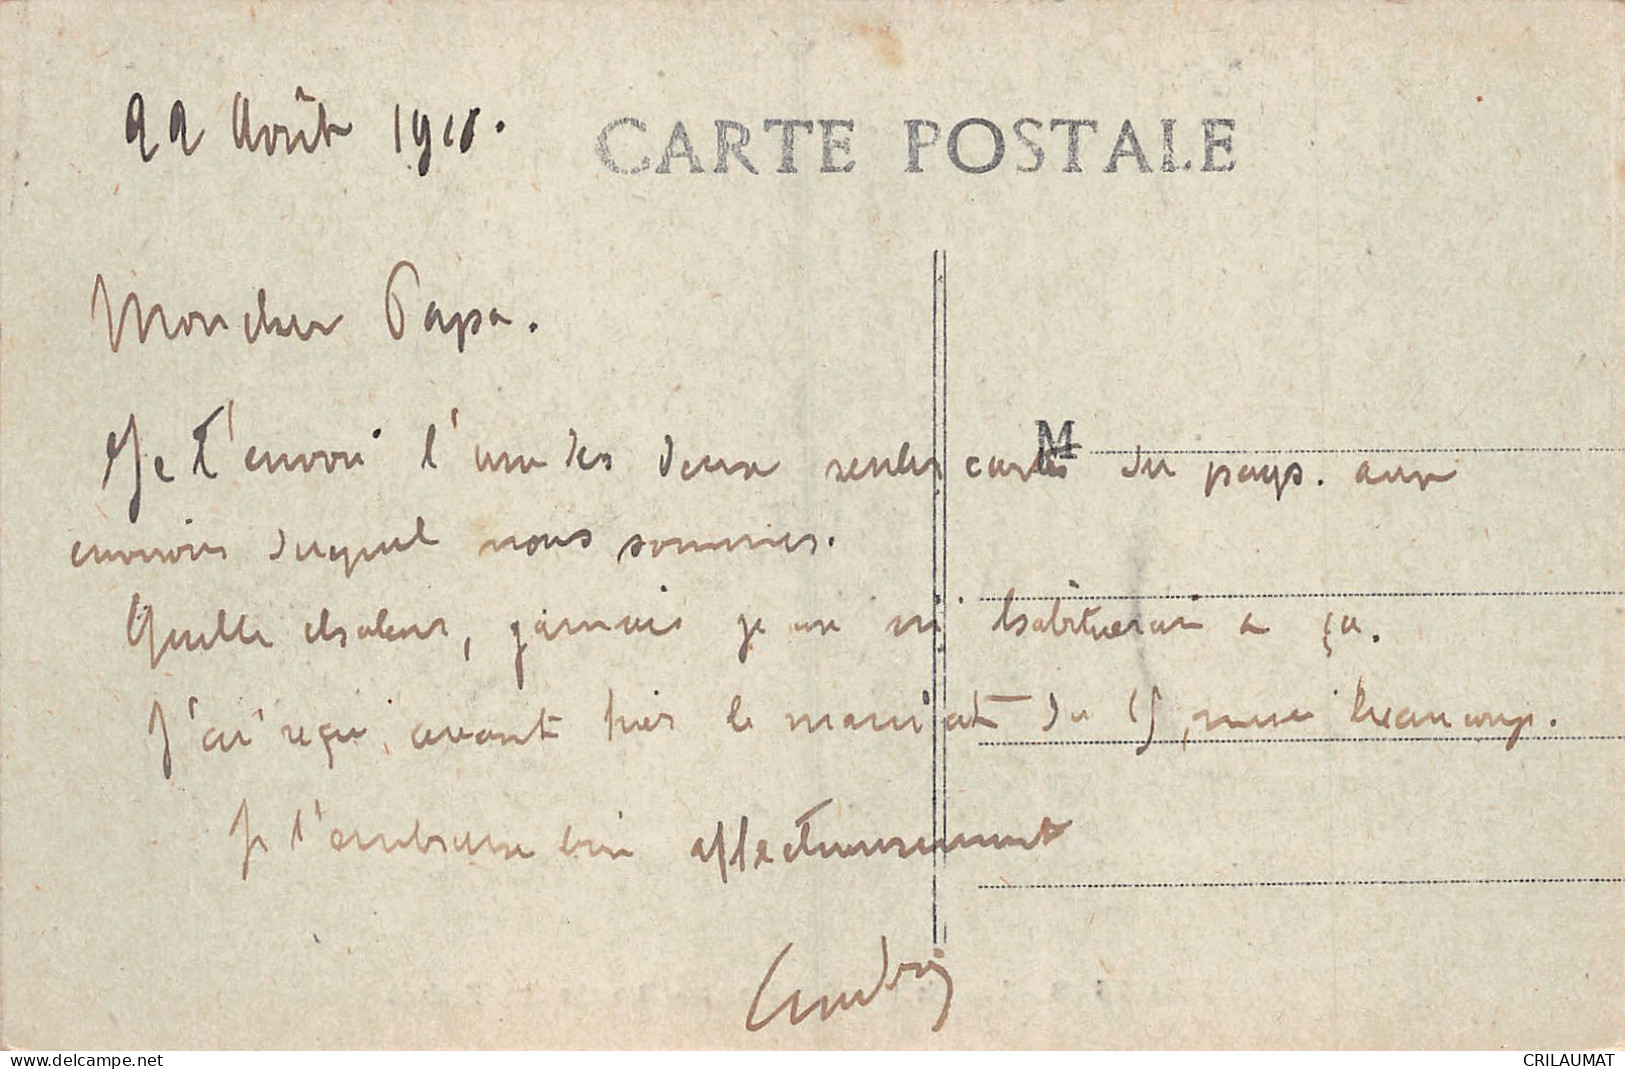 22 Août 1918.
CARTE POSTALE
Mon cher Papa.
M
Je t'envoi l'une des deux seules cartes du pays. aux
environs duquel nous sommes.
Quelle chaleur, jamais je ne m'habituerai a ça.
J'ai reçu, avant hier le mandat du 15, merci beaucoup.
Je t'embrasse bien affectueusement
André
www.delcampe.net
CRILAUMAT